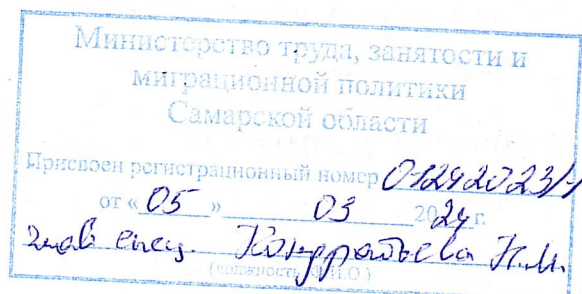 Министерство труда, занятости и
миграционной политики
Самарской области
Присвоен регистрационный номер 01242023/1
от « 05 » 03 2024 г.
глав спец. Кондратьева Н.М.
(должность, Ф.И.О.)